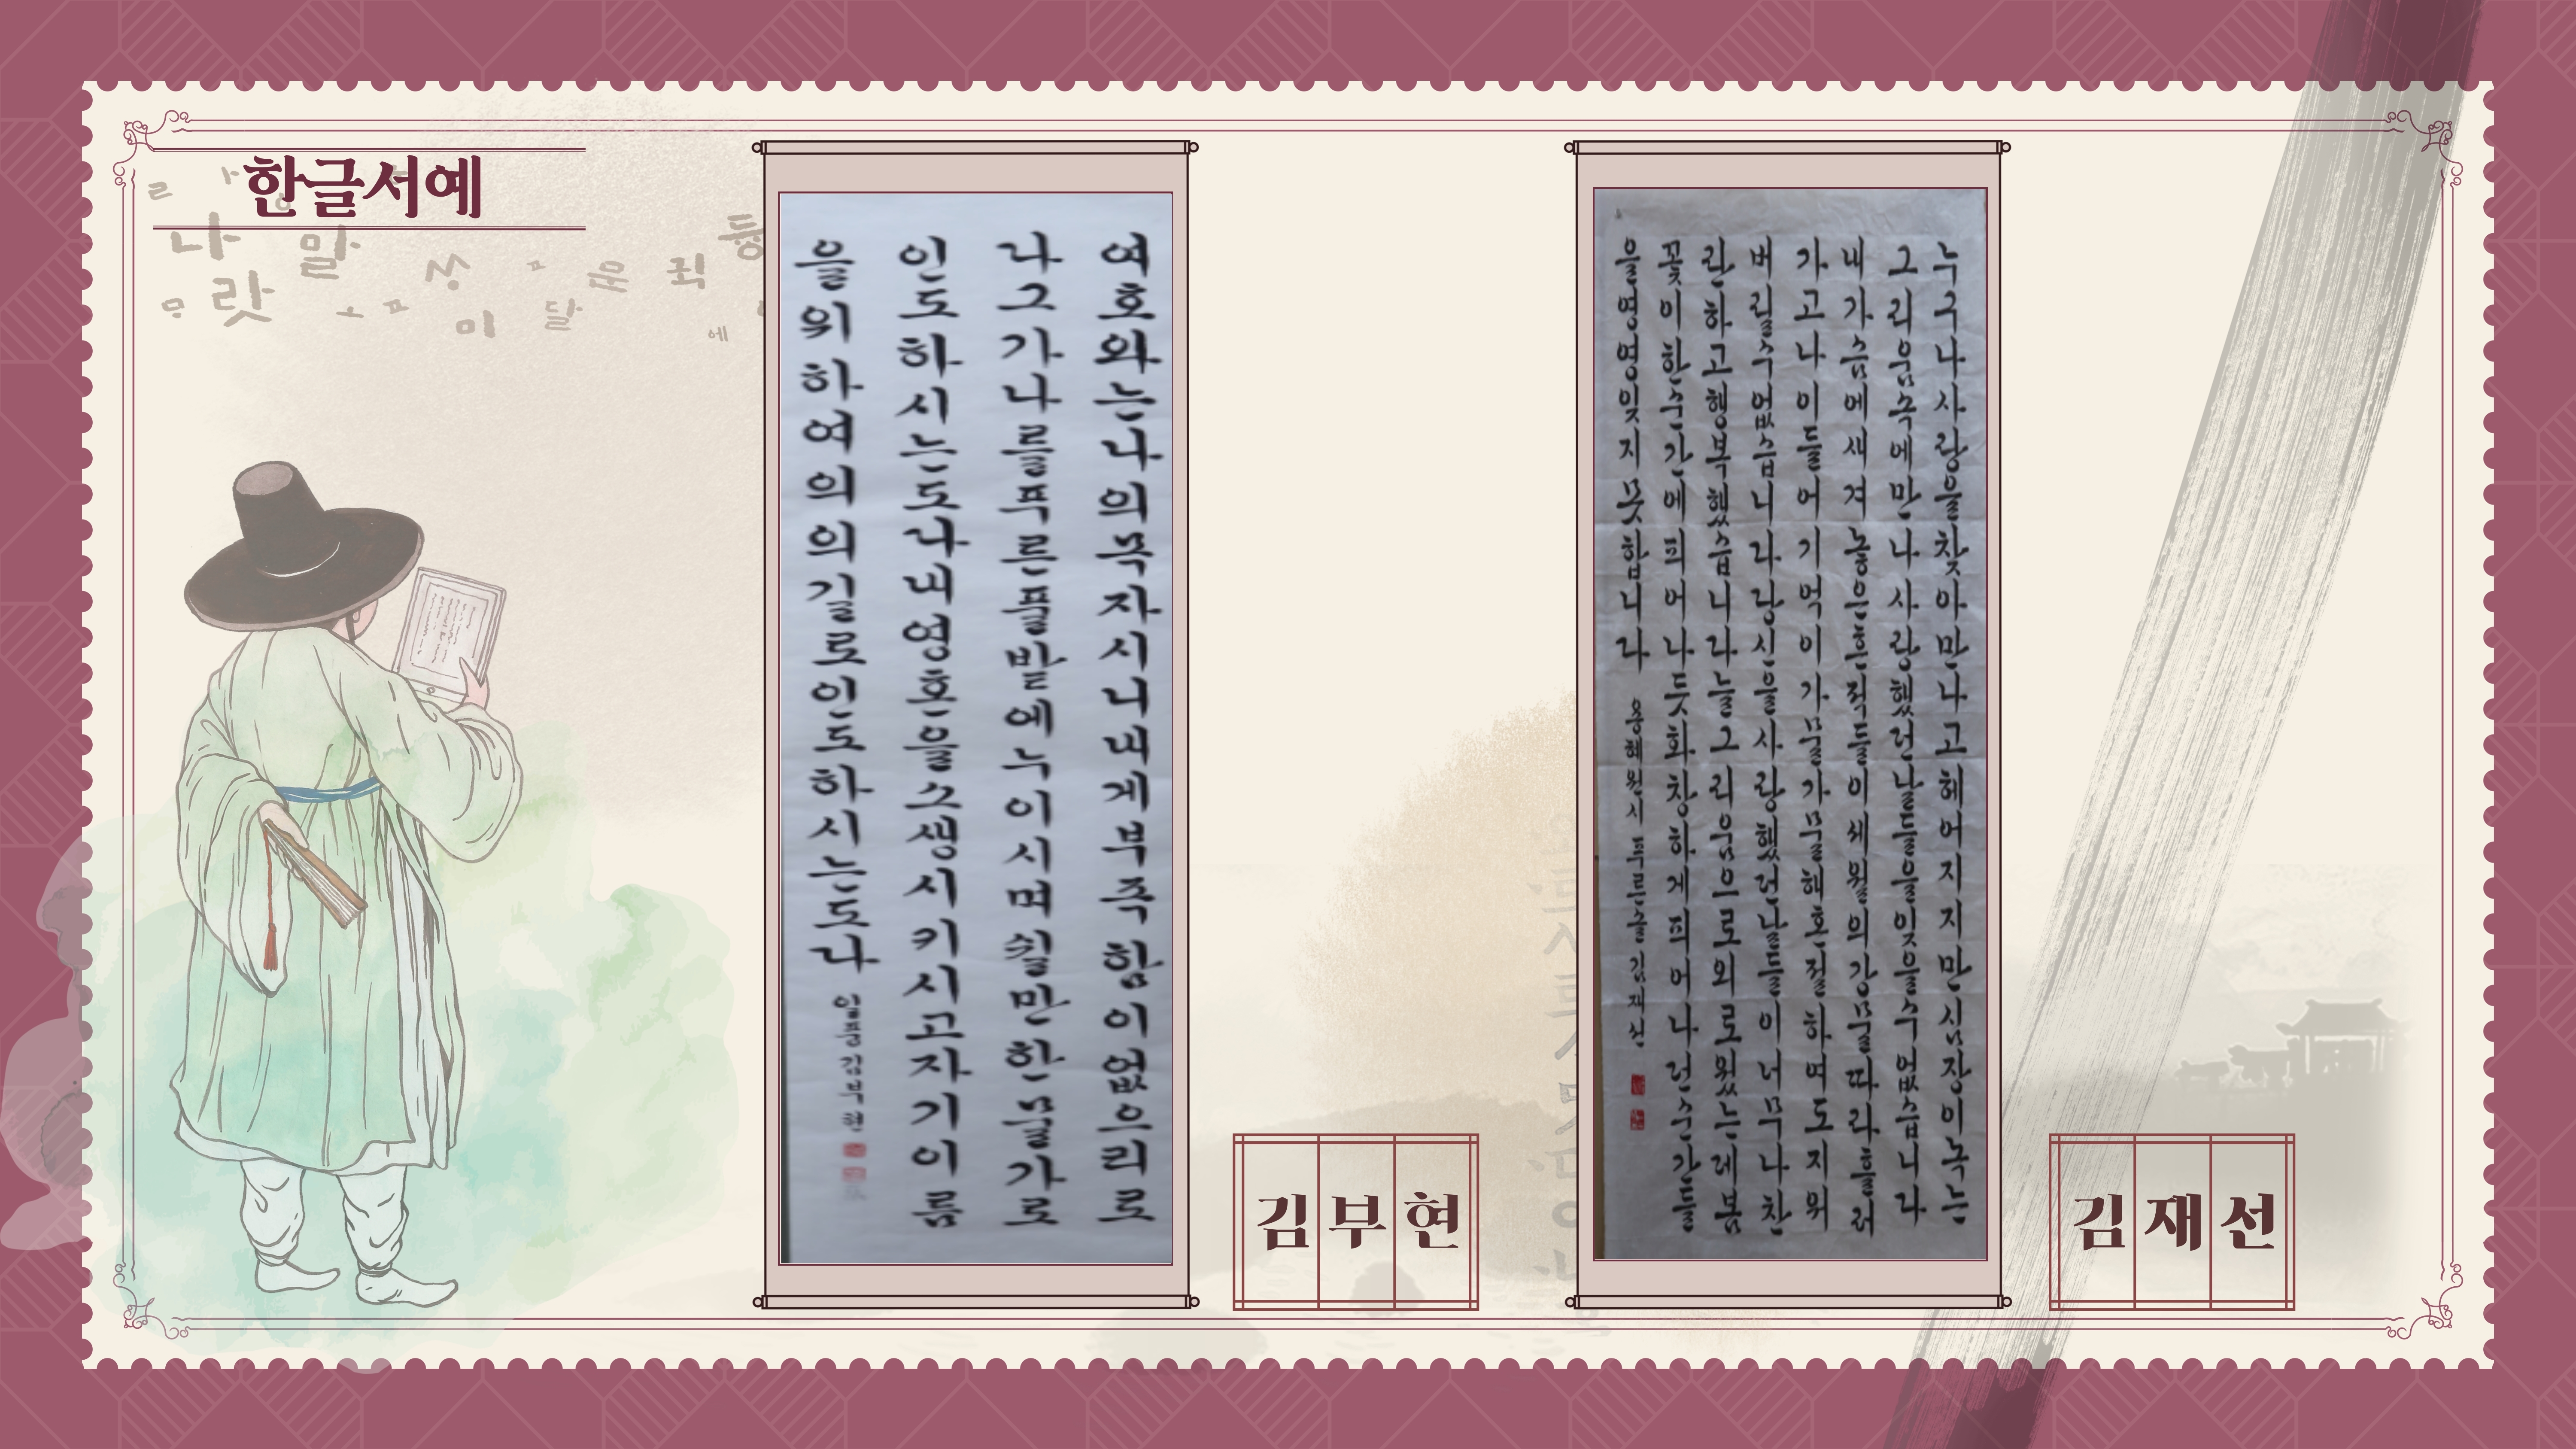 한글서예
여호와는나의목자시니내게부족함이없으리로
나그가나를푸른풀밭에누이시며쉴만한물가로
인도하시는도나내영혼을소생시키시고자기이름
을위하여의의길로인도하시는도나 김부현
김부현
누구나사랑을찾아만나고헤어지지만심장이녹는
그리움속에만나사랑했던날들을잊을수없습니다
내가슴에새겨놓은흔적들이세월의강물따라흘러
가고나이들어기억이가물가물해혼절하여도지워
버릴수없습니다당신을사랑했던날들이너무나찬
란하고행복했습니다늘그리움으로외로웠는데봄
꽃이한순간에피어나듯화창하게피어나던순간들
을영영잊지못합니다 용혜원시 푸른솔 김재선
김재선